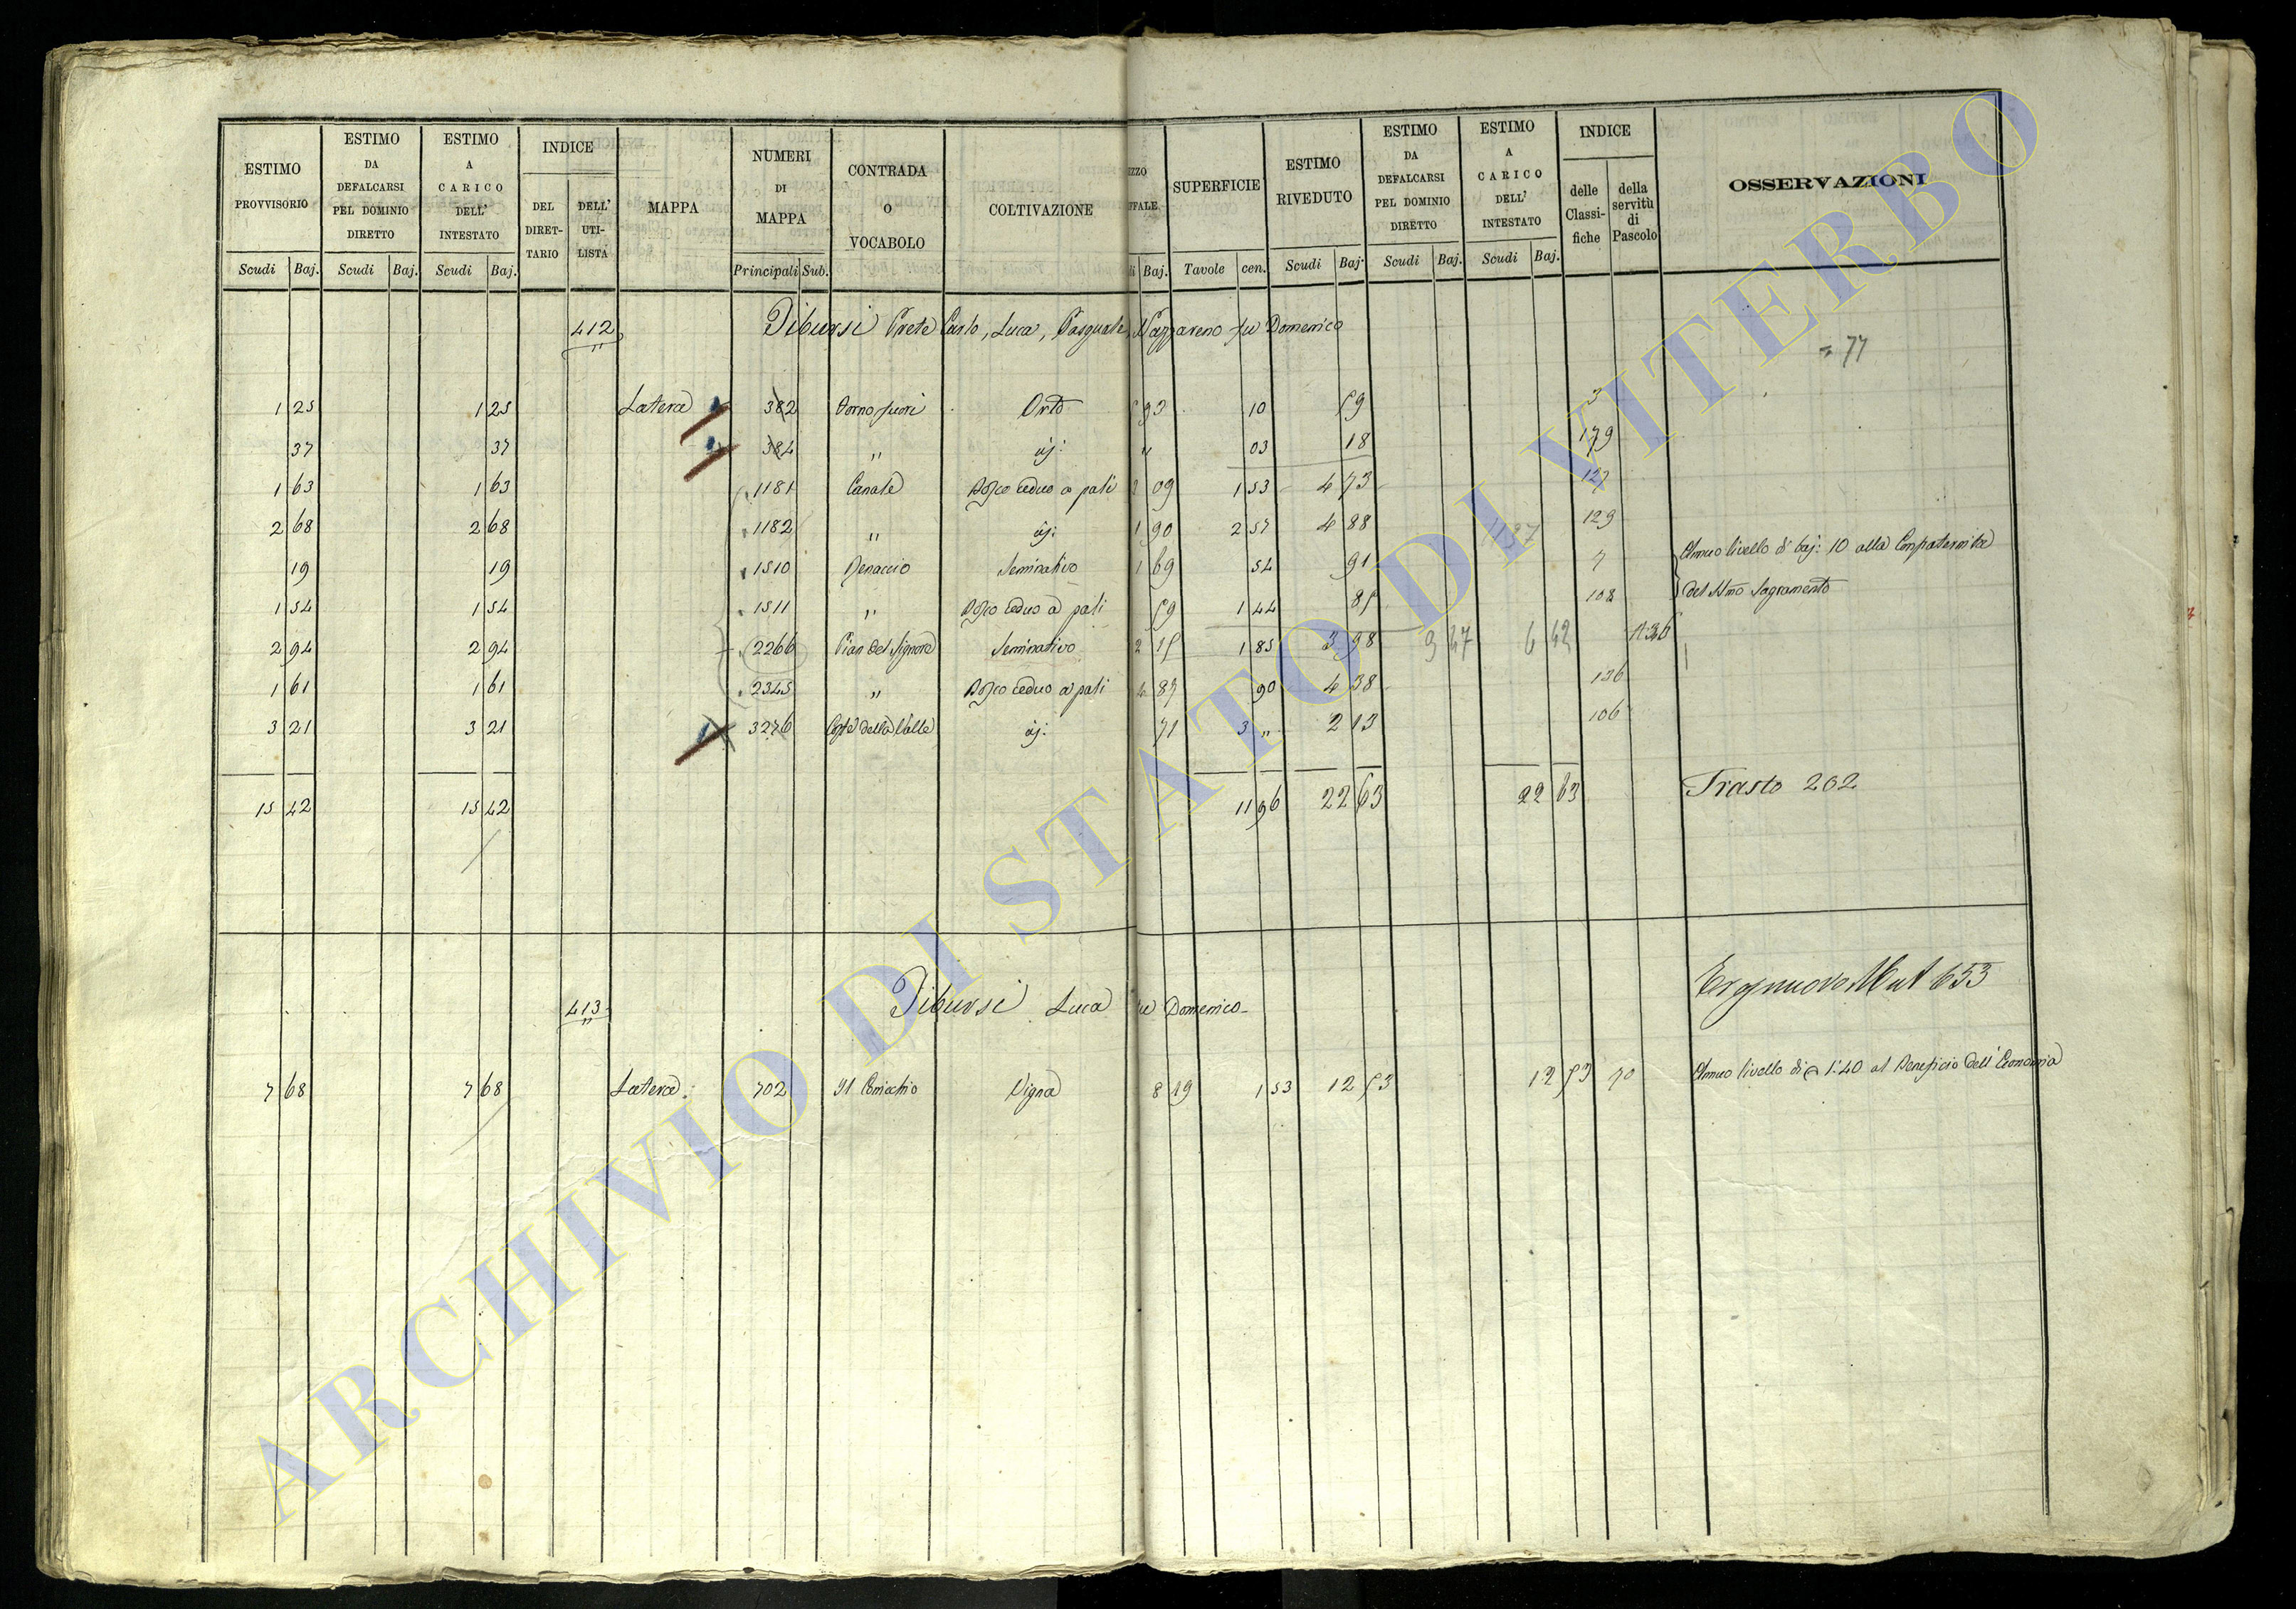 ESTIMO PROVVISORIO Scudi Baj. | ESTIMO DA DEFALCARSI PEL DOMINIO DIRETTO Scudi Baj. | ESTIMO A CARICO DELL' INTESTATO Scudi Baj. | INDICE DEL DIRETTARIO DELL' UTILISTA | MAPPA | NUMERI DI MAPPA Principali Sub. | CONTRADA O VOCABOLO | COLTIVAZIONE | Baj. | SUPERFICIE Tavole cen. | ESTIMO RIVEDUTO Scudi Baj. | ESTIMO DA DEFALCARSI PEL DOMINIO DIRETTO Scudi Baj. | ESTIMO A CARICO DELL' INTESTATO Scudi Baj. | INDICE delle Classifiche della servitù di Pascolo | OSSERVAZIONI
412 Tibursi Prete Carlo, Luca, Pasquale, Nazzareno fu Domenico
77
1 25 1 25 Latera 382 Torno fuori Orto 5 93 10 59 3
37 37 384 " id: " 03 18 179
1 63 1 63 1181 Canale Bosco ceduo a pali 3 09 1 53 4 73 127
2 68 2 68 1182 " id: 1 90 2 57 4 88 11 37 129
19 19 1510 Benaccio Seminativo 1 69 54 91 7 Annuo livello di baj: 10 alla Confraternita
1 54 1 54 1511 " Bosco ceduo a pali 59 1 44 85 108 del SSmo Sagramento
2 94 2 94 2266 Pian del Signore Seminativo 2 15 1 85 3 98 9 47 6 42 136
1 61 1 61 2345 " Bosco ceduo a pali 4 87 90 4 38 126
3 21 3 21 3276 Coste della Valle id: 71 3 " 2 13 106
15 42 15 42 11 96 22 63 22 63 Trasto 202
413 Tibursi Luca fu Domenico
Mut 653
7 68 7 68 Latera: 702 Il Cornachio Vigna 8 19 1 53 12 53 12 53 70 Annuo livello di 1:40 al Beneficio dell'Economia
ARCHIVIO DI STATO DI VITERBO